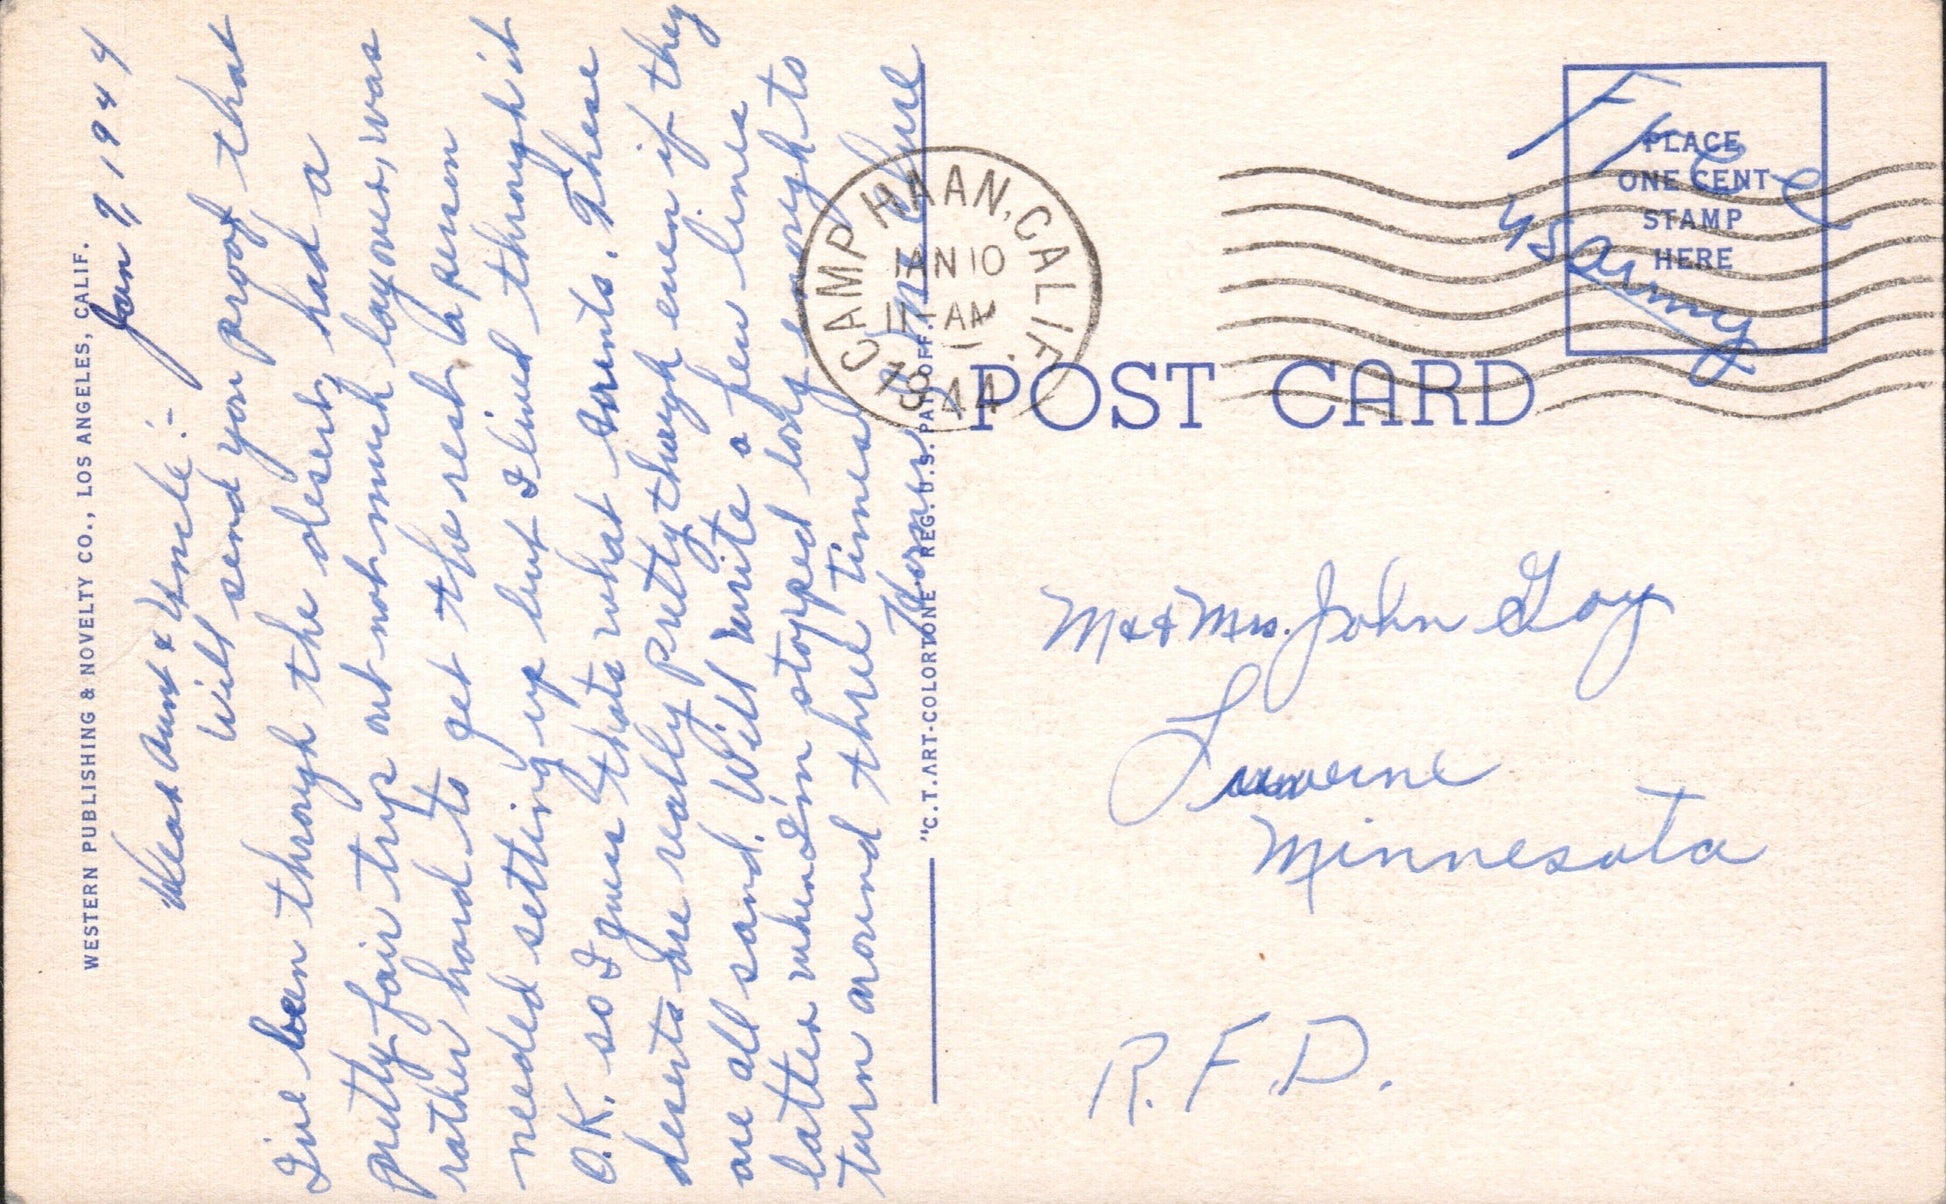 WESTERN PUBLISHING & NOVELTY CO., LOS ANGELES, CALIF.
Jan 9, 1944
Dear Aunt & Uncle:-
Will send you proof that
I've been through the desert, had a
pretty fair trip out not much layover, was
rather hard to get the rest a person
needed setting up but I lived through it
O.K. so I guess thats what counts. These
deserts are really pretty though even if they
are all sand. Will write a few lines
latter when I'm stopped long enough to
turn around three times
"C.T. ART-COLORTONE REG. U.S. PAT. OFF.
CAMP HAAN, CALIF.
JAN 10
11 AM
1944
POST CARD
PLACE
ONE CENT
STAMP
HERE
Free
US Army
Mr & Mrs. John Goy
Luverne
Minnesota
R.F.D.